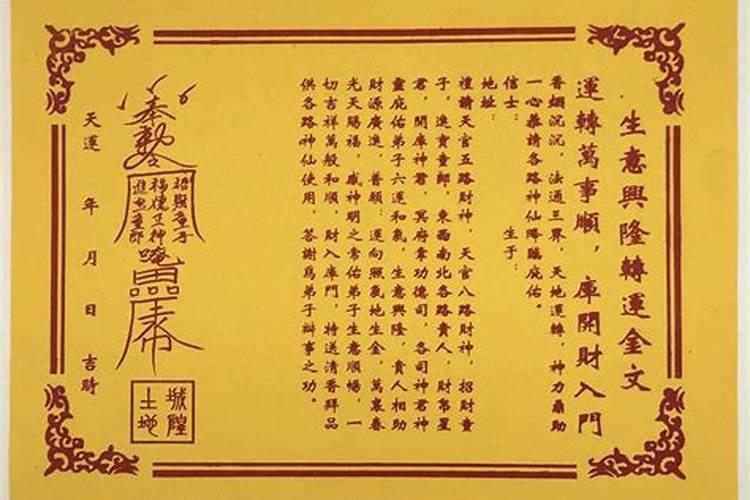 生意興隆轉運金文
運轉萬事順，庫開財入門
香煙沉沉，法通三界，天地運轉，神力鼎助
一心恭請各路神仙降臨庇佑。
信士：　生于：
地址：
禮請天官五路財神，天官八路財神，招財童
子，進寶童郎，東西南北各路貴人，財帛星
君，開庫神君，冥府掌功德司，各司神君神
靈庇佑弟子六運和氣，生意興隆，貴人相助
財源廣進，普願：運向照氣地生金，萬裏春
光天賜福，感神明之常佑弟子生意順暢，一
切吉祥萬般和順，財入庫門，特送清香拜品
供各路神仙使用，答謝爲弟子辦事之功。
奉勅令
招財童子
福德正神
進寶童郎
城隍
土地
天運　年　月　日　吉時